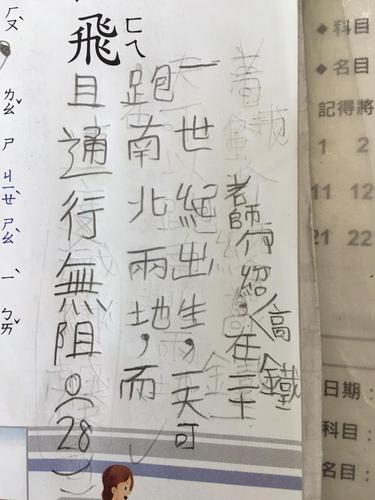 ◆科目
◆名目
記得將
1 2
11 12
21 22
日期：
科目：
名目：
高鐵
老師介紹：在二十
一世絕出生，一天可
跑南北兩地，而
且通行無阻。(28)
飛ㄈㄟ